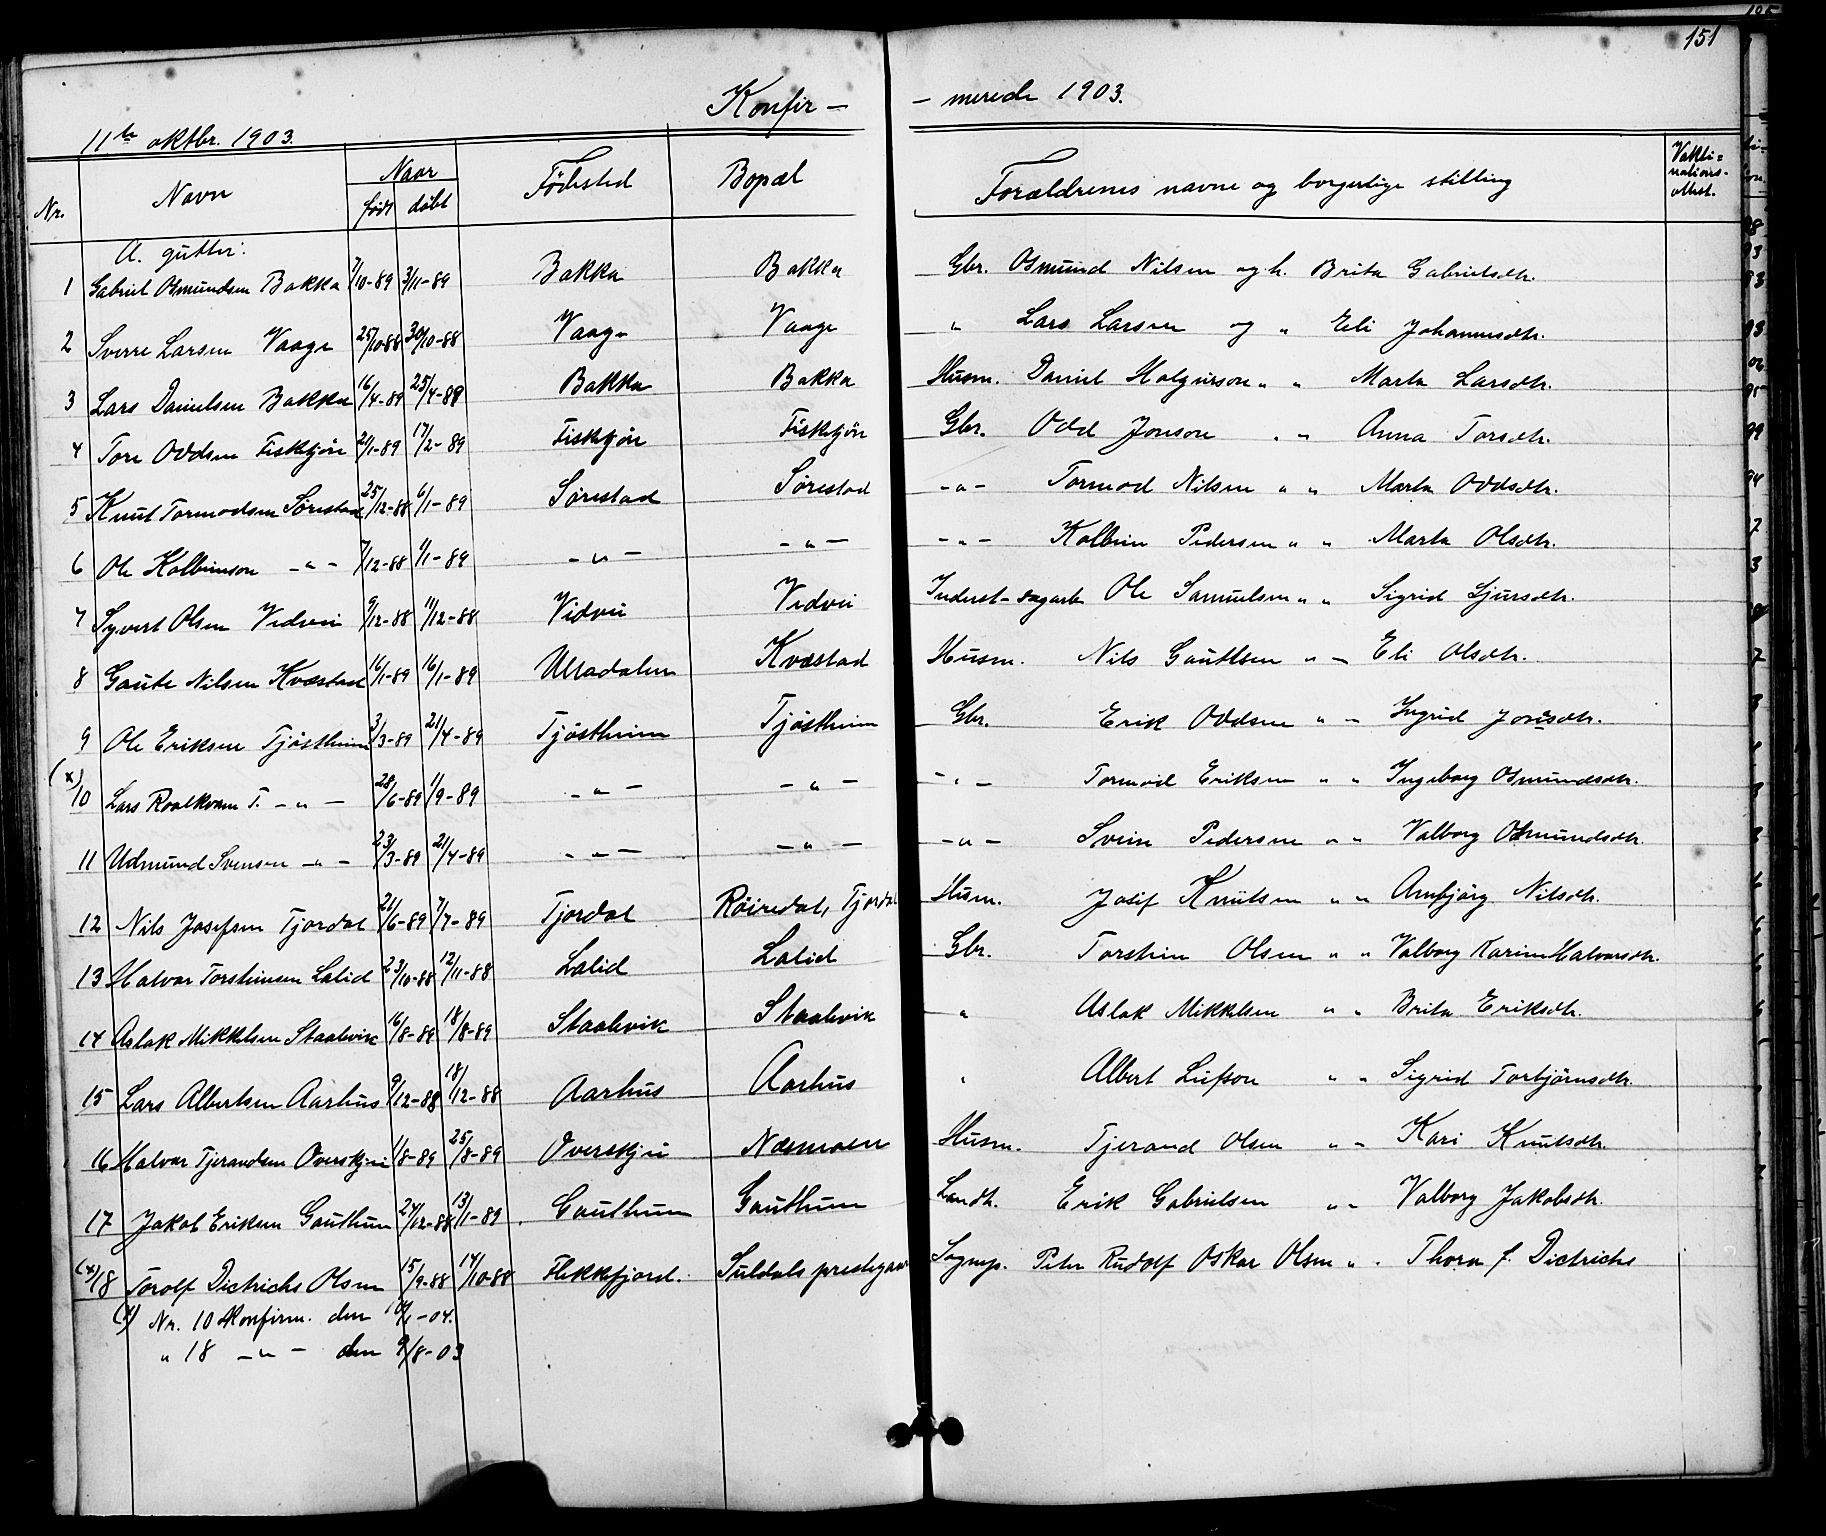 151
Konfir - - merede 1903.
11te oktbr. 1903.
Nr. Navn Naar født døbt Fødested Bopæl Forældrenes navne og borgerlige stilling Vakti= nations- attest.
A. gutter:
1 Gabriel Osmundsen Bakka 7/10-89 3/11-89 Bakka Bakka Gbr. Osmund Nilsen og h. Brita Gabrielsdtr.
2 Sverre Larsen Vaage 25/10-88 30/10-88 Vaage Vaage " Lars Larsen og " Eli Johannesdtr.
3 Lars Danielsen Bakka 16/4-89 25/4-89 Bakka Bakka Husm. Daniel Holgerson " " Marta Larsdtr.
4 Tore Oddsen Fiskekjøn 21/1-89 17/2-89 Fiskekjøn Fiskekjøn Gbr. Odd Jonson " " Anna Torsdtr.
5 Knut Tormodsen Sørestad 25/12-88 6/1-89 Sørestad Sørestad -"- Tormod Nilsen " " Marta Oddsdtr.
6 Ole Kolbeinson -"- 7/12-88 1/1-89 -"- -"- -"- Kolbein Pedersen " " Marta Olsdtr.
7 Syvert Olsen Vidvei 9/12-88 11/12-88 Vidvei Vidvei Inderst-dagarb. Ole Samuelsen " " Sigrid Sjursdtr.
8 Gaute Nilsen Kvæstad 16/1-89 16/1-89 Ulladalen Kvæstad Husm. Nils Gautesen " - Eli Olsdtr.
9 Ole Eriksen Tjøstheim 3/3-89 21/4-89 Tjøstheim Tjøstheim Gbr. Erik Oddsen " - Ingrid Jonsdtr.
(x) 10 Lars Roalkvam T. -"- 28/6-89 1/9-89 -"- -"- -"- Tormod Eriksen " " Ingeborg Osmundsdtr.
11 Udmund Svensen -"- 23/3-89 21/4-89 -"- -"- -"- Svein Pedersen " " Valborg Osmundsdtr.
12 Nils Josefsen Tjordal 21/6-89 7/7-89 Tjordal Røiredal, Tjordal Husm. Josef Knutsen " " Anbjørg Nilsdtr.
13 Halvor Torsteinsen Lalid 23/10-88 12/11-88 Lalid Lalid Gbr. Torstein Olsen " " Valborg Karine Halvorsdtr.
14 Aslak Mikkelsen Staalvik 16/8-89 18/8-89 Staalvik Staalvik " Aslak Mikkelsen " " Brita Eriksdtr.
15 Lars Albertsen Aarhus 9/12-88 18/12-88 Aarhus Aarhus " Albert Leifson " " Sigrid Torbjørnsdtr.
16 Halvor Tjerandsen Overskjei 1/8-89 25/8-89 Overskjei Næsmoen Husm. Tjerand Olsen " - Kari Knutsdtr.
17 Jakob Eriksen Gauthun 27/12-88 13/1-89 Gauthun Gauthun Landh. Erik Gabrielsen " - Valborg Jakobsdtr.
(x) 18 Torolf Dietrichs Olsen 15/9-88 14/10-88 Flekkefjord. Suldals prestegaard Sognep. Peter Rudolf Oskar Olsen " . Thora f. Dietrichs
(x) Nr. 10 konfirm. den 10/1-04.
" 18 -"- den 9/8-03